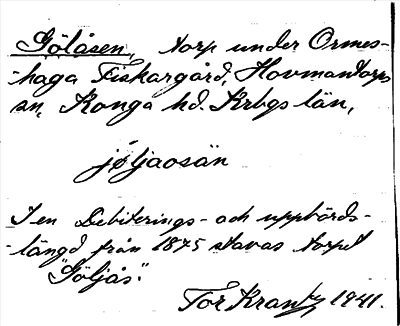 Gölåsen, torp under Ormes-
haga Fiskargård, Hovmantorps
sn, Konga hd. Krbgs län,
jøljaosän
I en Debiterings- och uppbörds-
längd från 1875 stavas torpet
"Göljås".
Tor Krantz 1941.